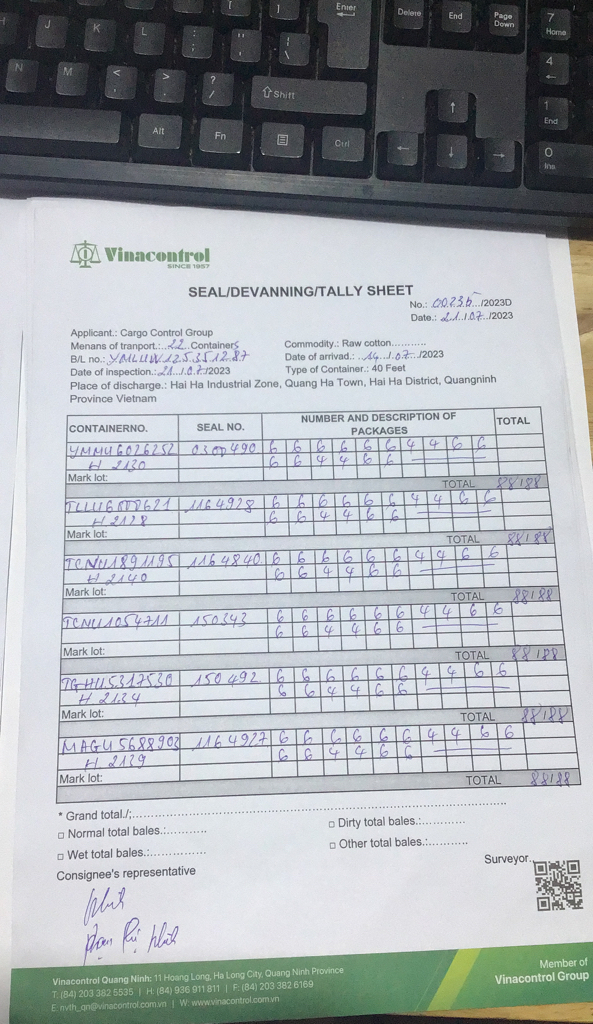 Enter
Delete
End
Page Down
7 Home
J
K
L
:
;
"
'
|
\
4
N
M
<
,
>
.
?
/
Shift
1 End
Alt
Fn
Ctrl
0 Ins
Vinacontrol
SINCE 1957
SEAL/DEVANNING/TALLY SHEET
No.: 00236../2023D
Date.: 21.../07../2023
Applicant.: Cargo Control Group
Menans of tranport.:..22..Containers
Commodity.: Raw cotton..........
B/L no.: YMLUW125351287
Date of arrivad.: ..14.../.07.../2023
Date of inspection.:21.../.07./2023
Type of Container.: 40 Feet
Place of discharge.: Hai Ha Industrial Zone, Quang Ha Town, Hai Ha District, Quangninh
Province Vietnam
CONTAINERNO. SEAL NO. NUMBER AND DESCRIPTION OF PACKAGES TOTAL
YMMU6026252 0300490 6 6 6 6 6 6 4 4 6 6
H 2130 6 6 4 4 6 6
Mark lot:
TOTAL 88/88
1164928 6 6 6 6 6 6 4 4 6 6
H 2128 6 6 4 4 6 6
Mark lot:
TOTAL 88/88
TCNU1891195 1164840 6 6 6 6 6 6 4 4 6 6
H 2140 6 6 4 4 6 6
Mark lot:
TOTAL 88/88
TCNU1054711 150343 6 6 6 6 6 6 4 4 6 6
6 6 4 4 6 6
Mark lot:
TOTAL 88/88
TGHU5317530 150492 6 6 6 6 6 6 4 4 6 6
H 2134 6 6 4 4 6 6
Mark lot:
TOTAL 88/88
MAGU5688903 1164927 6 6 6 6 6 6 4 4 6 6
H 2139 6 6 4 4 6 6
Mark lot:
TOTAL 88/88
* Grand total./;
□ Normal total bales.:...........
□ Dirty total bales.:............
□ Wet total bales.:...............
□ Other total bales.:...........
Consignee's representative
Surveyor..
Vinacontrol Quang Ninh: 11 Hoang Long, Ha Long City, Quang Ninh Province
T: (84) 203 382 5535 | H: (84) 936 911 811 | F: (84) 203 382 6169
E: nvth_qn@vinacontrol.com.vn | W: www.vinacontrol.com.vn
Member of
Vinacontrol Group